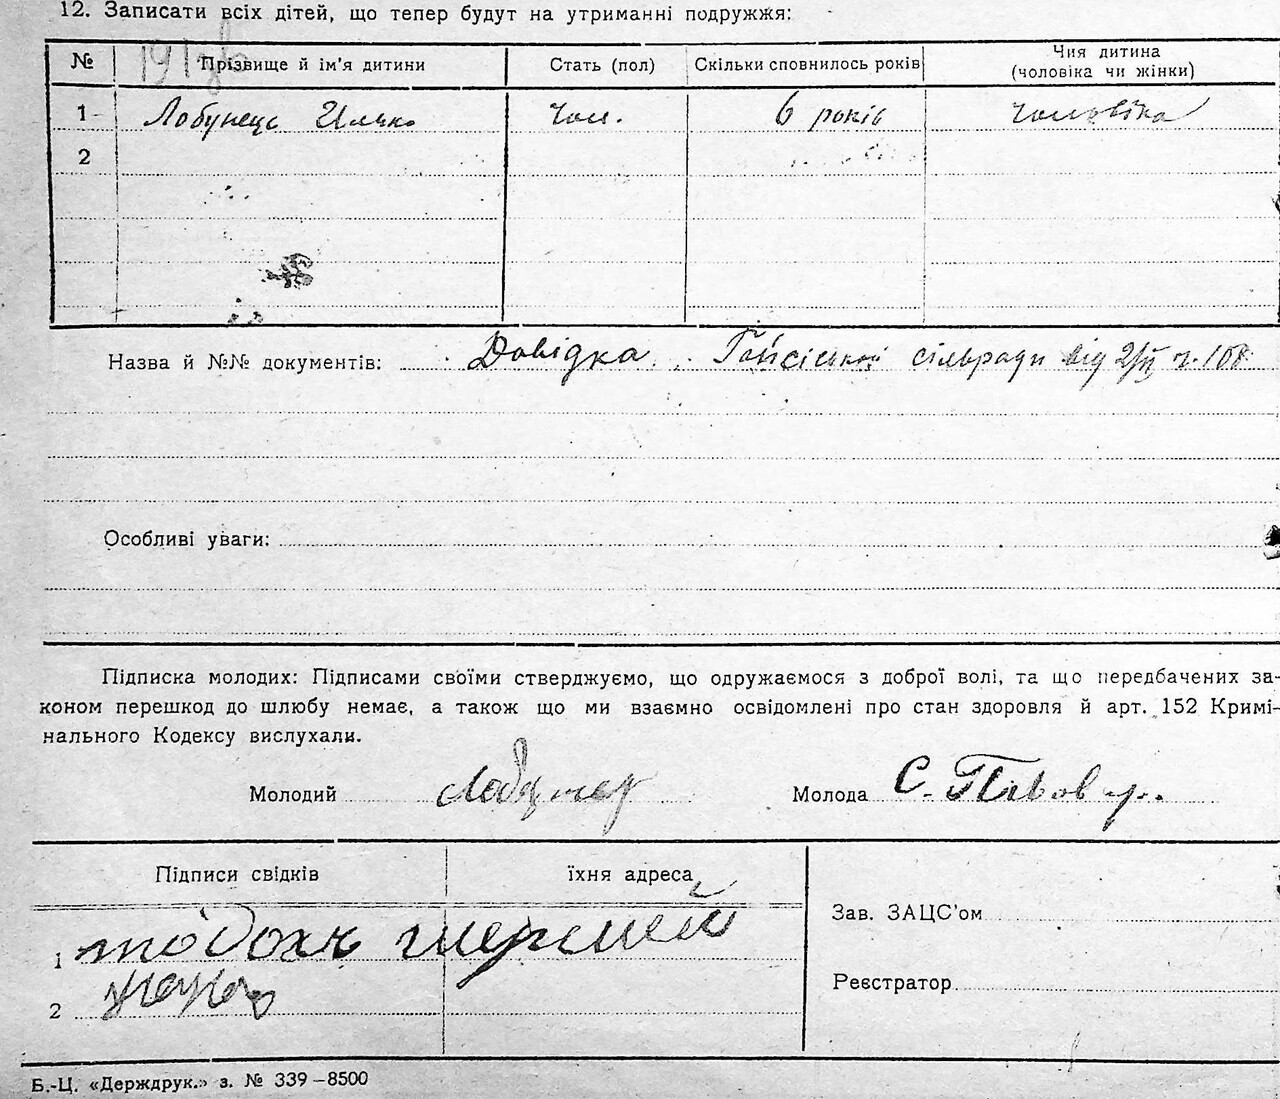 12. Записати всіх дітей, що тепер будут на утриманні подружжя:
№ Прізвище й ім'я дитини Стать (пол) Скільки сповнилось років Чия дитина (чоловіка чи жінки)
1 Лобунець Илько Чол. 6 років Чоловіка
2
Назва й №№ документів: Довідка сільради від 2/II ч. 108
Особливі уваги:
Підписка молодих: Підписами своїми стверджуємо, що одружаємося з доброї волі, та що передбачених за-
коном перешкод до шлюбу немає, а також що ми взаємно освідомлені про стан здоровля й арт. 152 Кримі-
нального Кодексу вислухали.
Молодий Молода С.
Підписи свідків їхня адреса
Зав. ЗАЦС'ом
1
Реєстратор
2
Б.-Ц. «Держдрук.» з. № 339–8500